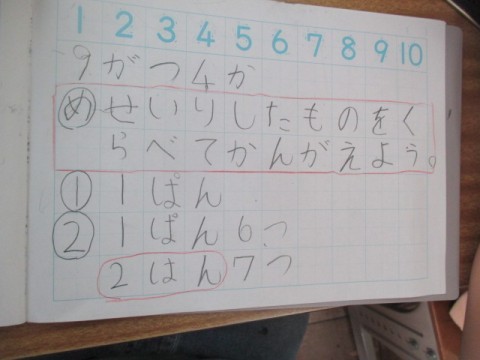 1 2 3 4 5 6 7 8 9 10
9がつ4か
めせいりしたものをく
らべてかんがえよう。
①1ぱん
②1ぱん6つ
2はん7つ